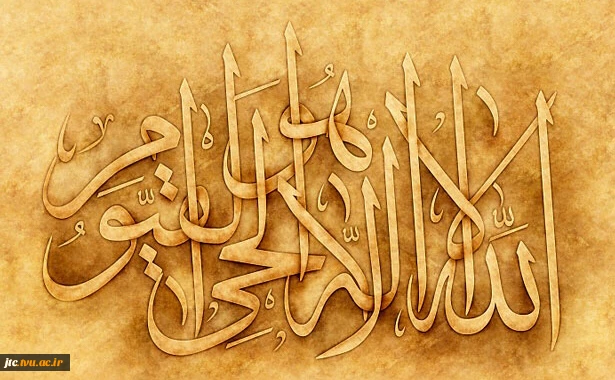 الله لا إله إلا هو الحي القيوم
jtc.tvu.ac.ir